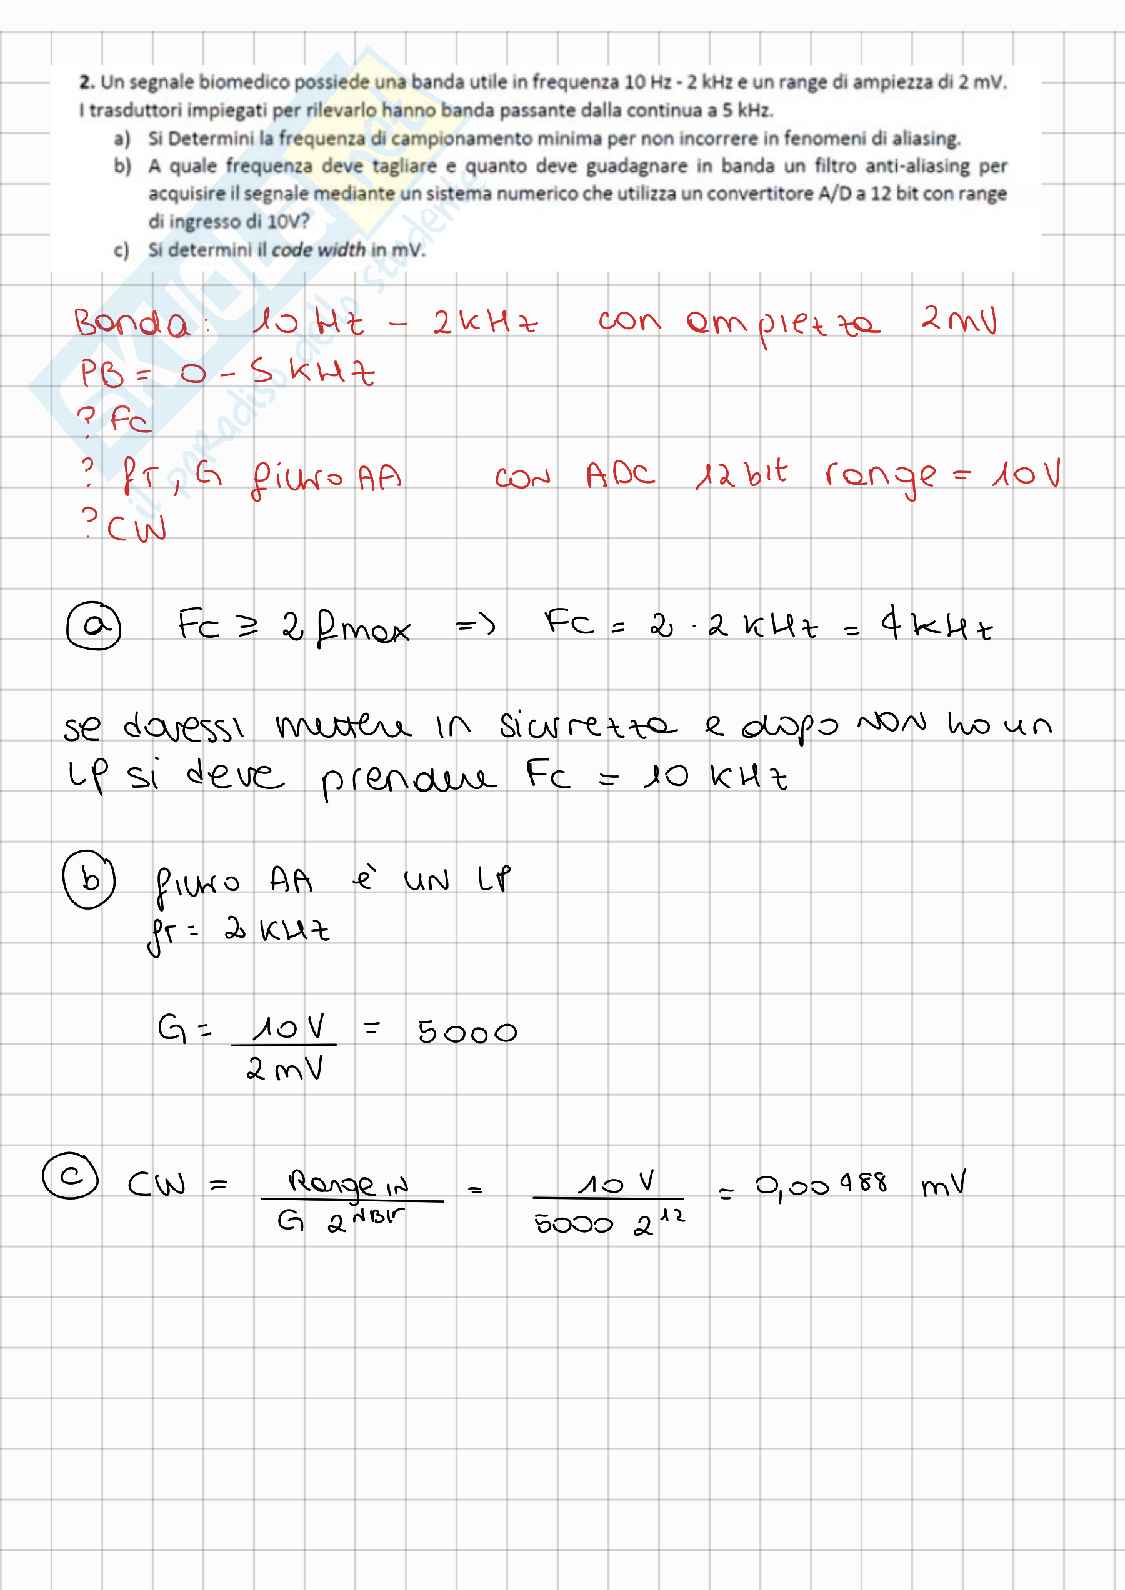 2. Un segnale biomedico possiede una banda utile in frequenza 10 Hz - 2 kHz e un range di ampiezza di 2 mV.
I trasduttori impiegati per rilevarlo hanno banda passante dalla continua a 5 kHz.
a) Si Determini la frequenza di campionamento minima per non incorrere in fenomeni di aliasing.
b) A quale frequenza deve tagliare e quanto deve guadagnare in banda un filtro anti-aliasing per
acquisire il segnale mediante un sistema numerico che utilizza un convertitore A/D a 12 bit con range
di ingresso di 10V?
c) Si determini il code width in mV.
SKUOLA.net
il paradiso dello studente
Banda: 10 Hz - 2 kHz con ampiezza 2 mV
PB = 0 - 5 kHz
? Fc
? fT, G filtro AA con ADC 12 bit range = 10 V
? CW
a Fc ≥ 2 fmax => Fc = 2 · 2 kHz = 4 kHz
se dovessi mettere in sicurezza e dopo NON ho un
LP si deve prendere Fc = 10 kHz
b filtro AA è UN LP
fT = 2 kHz
G = 10 V / 2 mV = 5000
c CW = Range IN / G 2^NBIT = 10 V / 5000 2^12 = 0,00488 mV